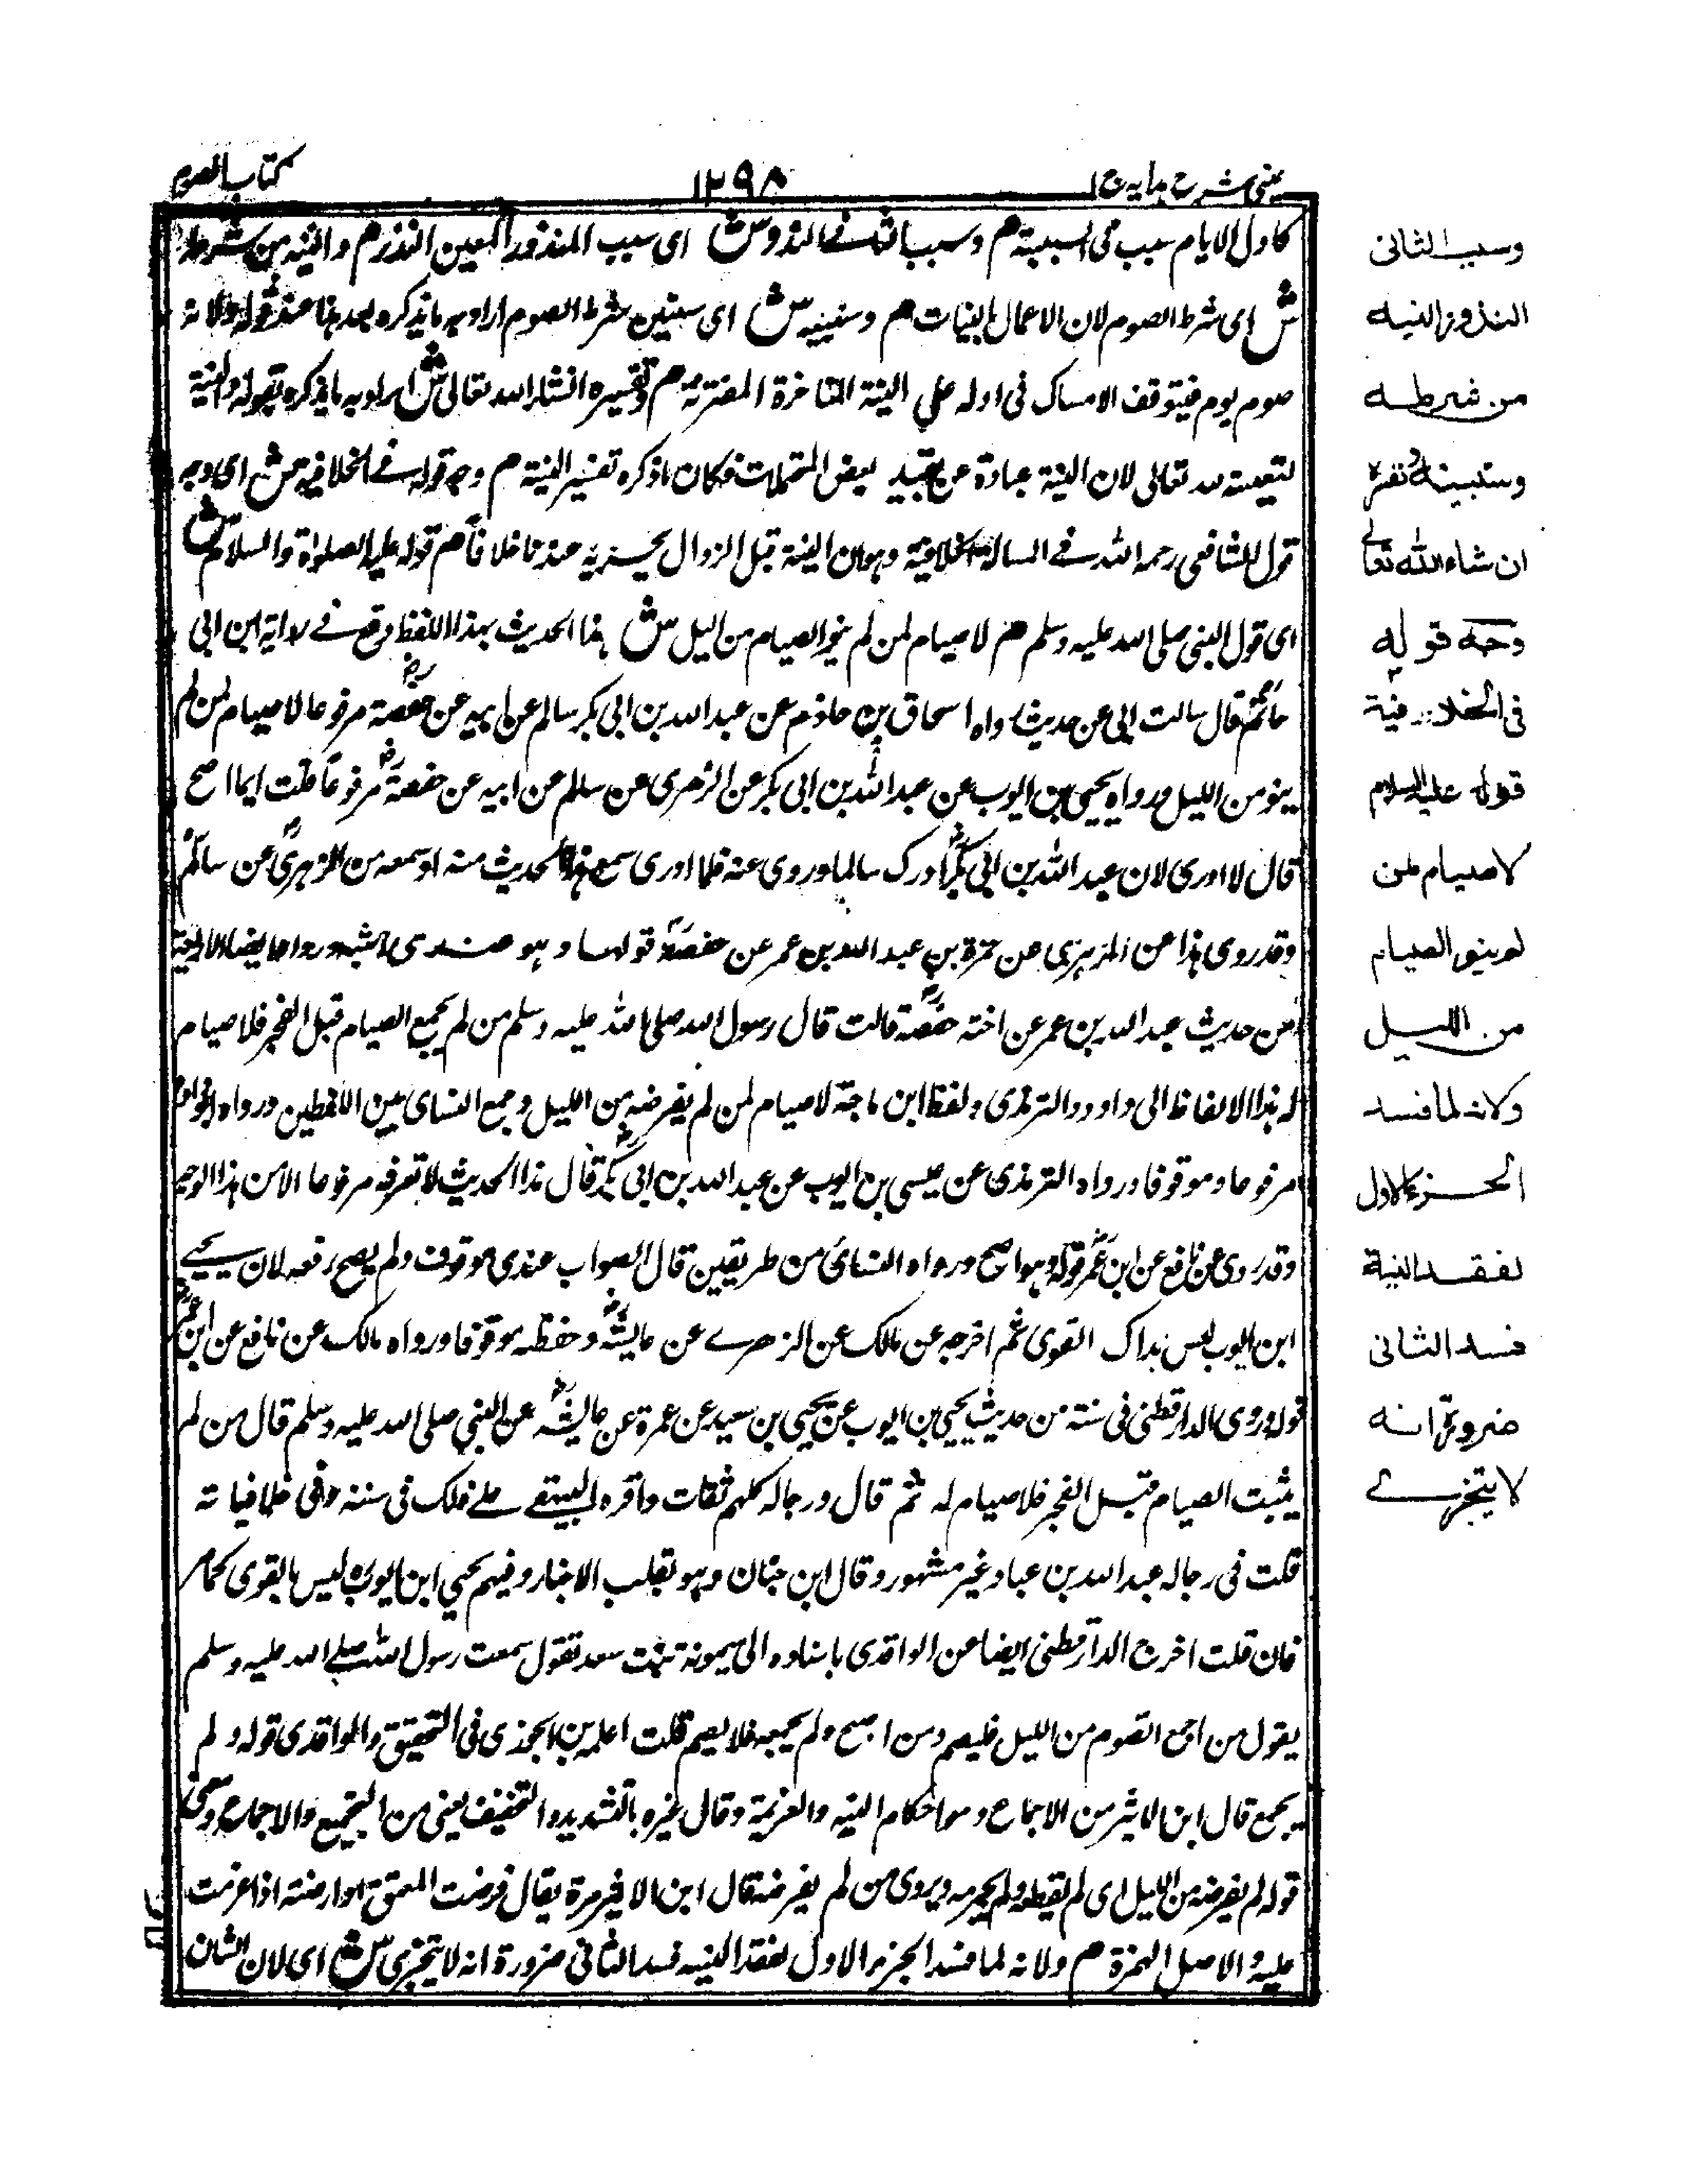 عینی شرح ہدایہ ج ۱
۱۲۹۸
کتاب الصوم
کاول الایام سبب فی السببیة م وسبب الثانے النذر وش ای سبب المنذور المعین النذر م والنیة من شرطہ
ش ای شرط الصوم لان الاعمال بالنیات م وسنبینہ ش ای سنبین شرط الصوم اراد بہ ما یذکرہ بعد ہذا عند قولہ ولانہ
صوم یوم فیتوقف الامساک فی اولہ علی النیة المتاخرة المقترنة م وتفسیرہ انشاء اللہ تعالی ش اراد بہ ما یذکرہ بقولہ والنیة
لتعینہ للہ تعالی لان النیة عبارة عن بعض المحتملات فکان ما ذکرہ تفسیر النیة م وجہ قولہ فے الخلافیة ش ای وجہ
قول الشافعی رحمہ اللہ فے المسالة الخلافیة وہو ان النیة قبل الزوال یجزیہ عندنا خلافا م قولہ علیہ الصلوة والسلام ش
ای قول النبی صلی اللہ علیہ وسلم م لا صیام لمن لم ینو الصیام من اللیل ش ہذا الحدیث بہذا اللفظ وقع فے روایة ابن ابی
حاتم قال سالت ابی عن حدیث رواہ اسحاق بن حازم عن عبد اللہ بن ابی بکر سالم عن ابیہ عن حفصة مرفوعا لا صیام لمن لم
ینو من اللیل ورواہ یحیی بن ایوب عن عبد اللہ بن ابی بکر عن الزہری عن سالم عن ابیہ عن حفصة مرفوعا قلت ایما اصح
قال لا ادری لان عبد اللہ بن ابی بکر ادرک سالما وروی عنہ فلا ادری سمع ہذا الحدیث منہ او سمعہ من الزہری عن سالم
وقد روی ہذا عن الزہری عن حمزة بن عبد اللہ بن عمر عن حفصة قولہا وہو عندی اشبہ ورواہ ایضا الاربعة
من حدیث عبد اللہ بن عمر عن اختہ حفصة قالت قال رسول اللہ صلی اللہ علیہ وسلم من لم یجمع الصیام قبل الفجر فلا صیام
لہ ہذا الالفاظ ابی داود والترمذی ولفظ ابن ماجة لا صیام لمن لم یفرضہ من اللیل وجمع النسای بین اللفظین ورواہ
مرفوعا وموقوفا ورواہ الترمذی عن عیسی بن ایوب عن عبد اللہ بن ابی بکر قال ہذا الحدیث لا نعرفہ مرفوعا الا من ہذا الوجہ
وقد روی عن نافع عن ابن عمر قولہ وہو اصح ورواہ النسائی من طریقین قال الصواب عندی موقوف ولم یصح رفعہ لان یحیے
ابن ایوب لیس بذاک القوی ثم اخرجہ عن مالک عن الزھرے عن عایشة وحفظہ موقوفا ورواہ مالک عن نافع عن ابن عمر
قولہ وروی الدارقطنی فی سنتہ من حدیث یحیی بن ایوب عن یحیی بن سعید عن عمرة عن عایشة عن النبی صلی اللہ علیہ وسلم قال من لم
یثبت الصیام قبل الفجر فلا صیام لہ ثم قال ورجالہ کلہم ثقات واقرہ البیہقے علے ذلک فی سننہ وفی خلافیاتہ
قلت فی رجالہ عبد اللہ بن عباد غیر مشہور وقال ابن حبان وہو یقلب الاخبار وفیہم یحیی ابن ایوب لیس بالقوی کما مر
فان قلت اخرج الدارقطنی ایضا عن الواقدی باسنادہ الی میمونة بنت سعد تقول سمعت رسول اللہ صلے اللہ علیہ وسلم
یقول من اجمع الصوم من اللیل فلیصم ومن اصبح ولم یجمعہ فلا یصم قلت اعلہ بن الجوزی فی التحقیق والواقدی قولہ ولم
یجمع قال ابن الاثیر من الاجماع وہو احکام النیة والعزیمة وقال غیرہ بالتشدید والتخفیف یعنی من التجمیع والاجماع ومعنی
قولہ لم یفرضہ من اللیل ای لم یقطعہ ولم یجزمہ ویروی من لم یفرضہ قال ابن الاثیر مرة یقال فرضت اذا عزمت
علیہ والاصل الہمزة م ولانہ لما فسد الجزء الاول لفقد النیة فسد الثانی ضرورة انہ لا یتجزی ش ای لان الشان
وسبب الثانی
النذر والنیه
من شرطه
وسنبینه وتفسیره
ان شاء الله تعالی
وجه قوله
فی الخلافیة
قوله علیه السلام
لا صیام لمن
لم ینو الصیام
من اللیل
ولانه لما فسد
الجزء الاول
لفقد النیة
فسد الثانی
ضرورة انه
لا یتجزے